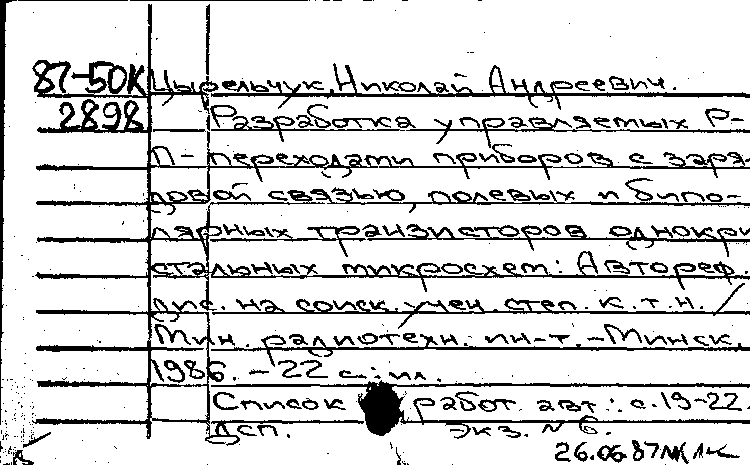 87-50К Цырельчук, Николай Андреевич.
2898 Разработка управляемых Р-
П-переходами приборов с заря-
довой связью, полевых и бипо-
лярных транзисторов однокри
стальных микросхем: Автореф.
дис. на соиск. учен. степ. к.т.н. /
Мин. радиотехн. ин-т. - Минск,
1986. - 22 с.: ил.
Список работ авт.: с.19-22.
ДСП. экз. N 6.
26.06.87